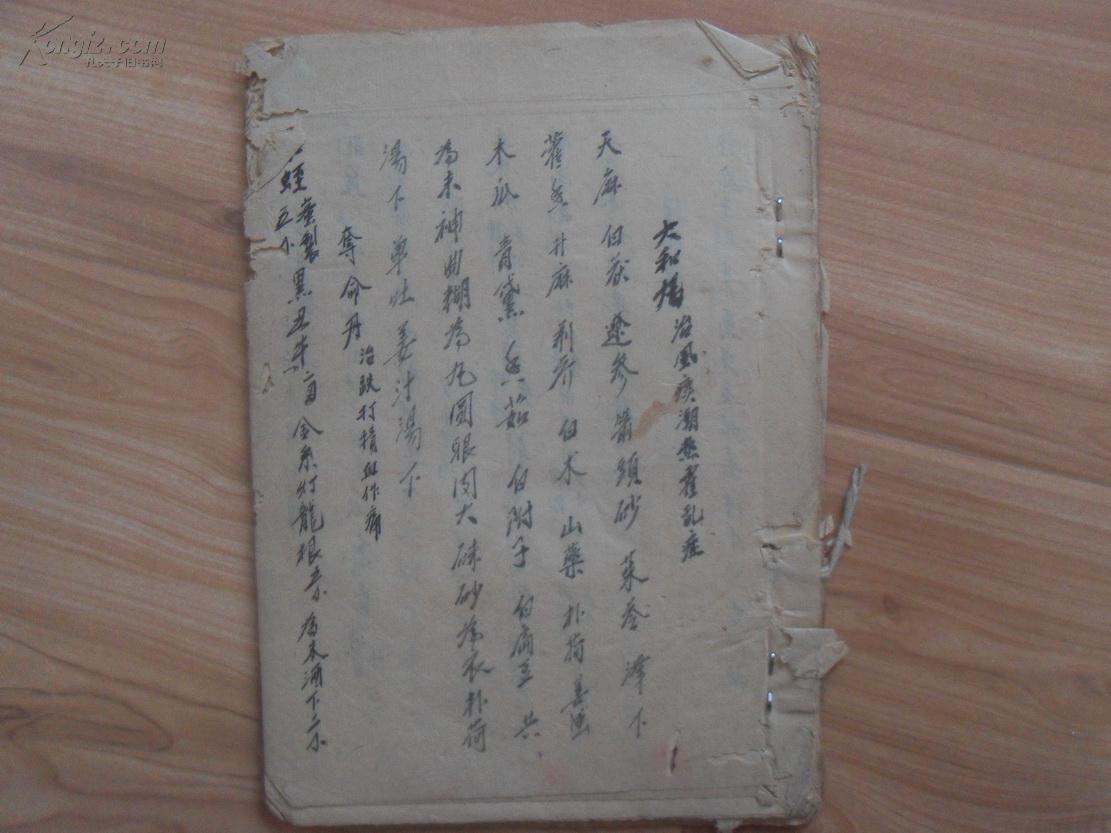 大和湯 治風痰潮熱霍乱症
天麻 白茯 遼參 箭頭砂 萊參 澤下
藿香 升麻 利芥 白术 山藥 扑荷 姜蚕
木瓜 青黛 香茹 白附子 白扁豆 共
為末神曲糊為丸圓眼肉大硃砂為衣扑荷
湯下 单吐姜汁湯下
奪命丹 治跌打積血作痛
蛭 製 五小 黑丑 金系灯龍根 為末酒下二小
Kongfz.com
孔夫子旧书网